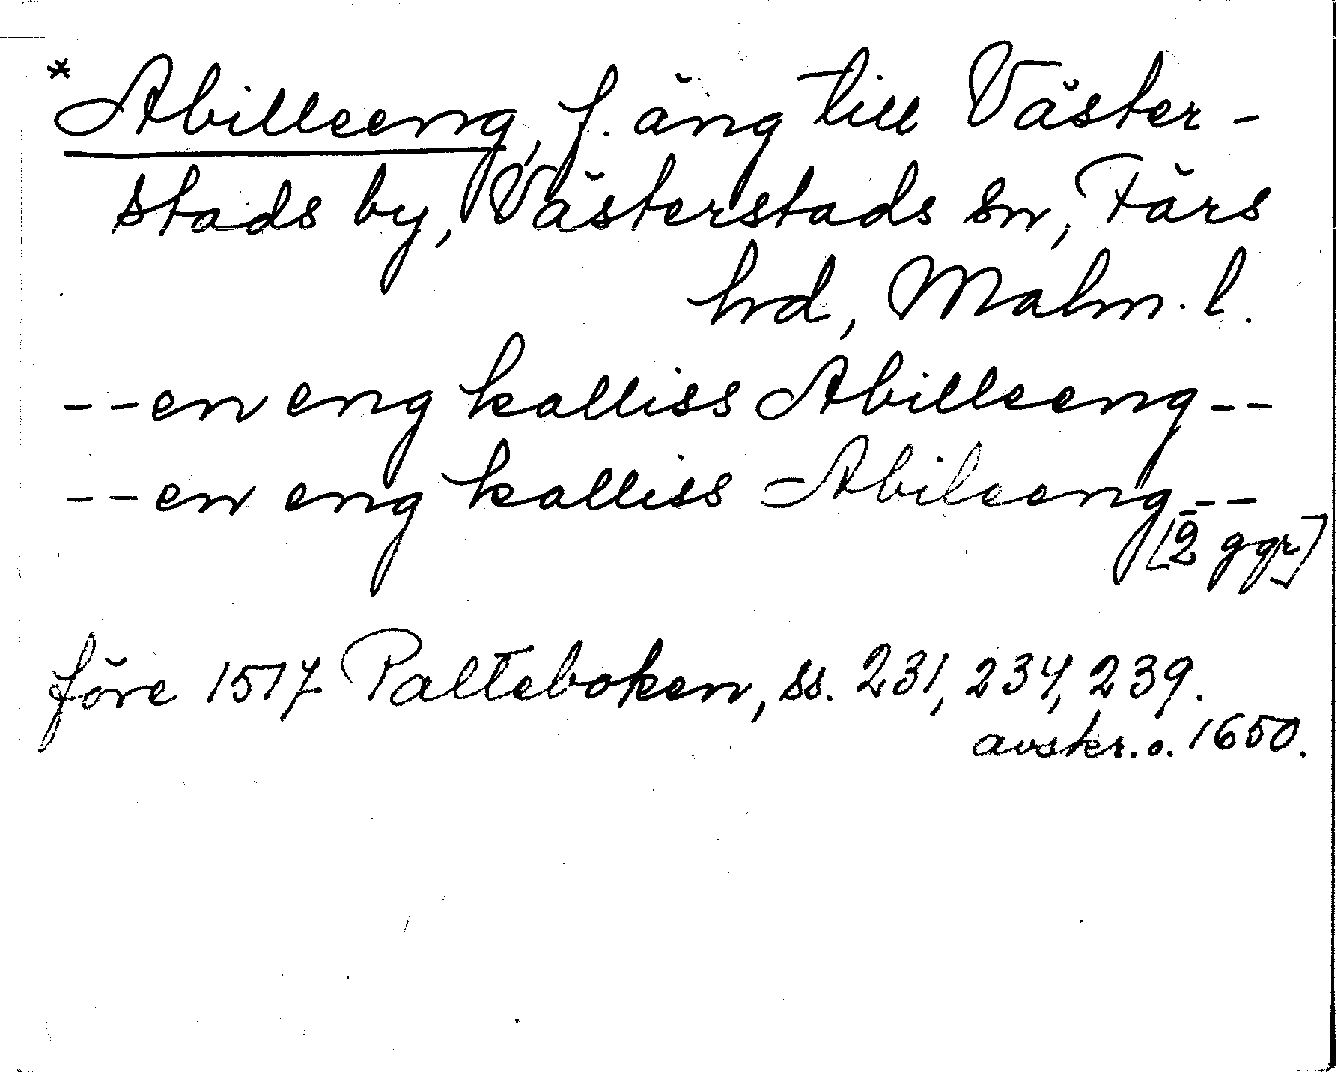 *Abilleeng, f. äng till Väster-
stads by, Västerstads sn, Färs
hrd, Malm. l.
--en eng kalliss Abilleeng--
--en eng kalliss Abileeng--
[2 ggr]
före 1517 Palteboken, ss. 231, 234, 239.
avskr. o. 1650.